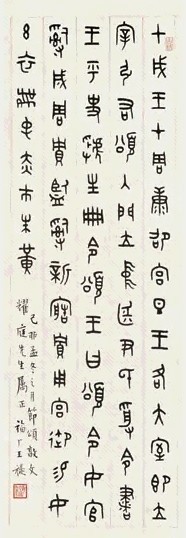 甲戌王才周康卲宮旦王各大室即立
宰引右頌入門立中廷尹氏受令書
王乎史虢生冊令頌王曰令女官
𤔲成周貯監𤔲新造貯用宮御易女
玄衣黹屯赤巿朱黃
己卯孟冬之月節頌敦文
耀庭先生屬正 福厂王禔